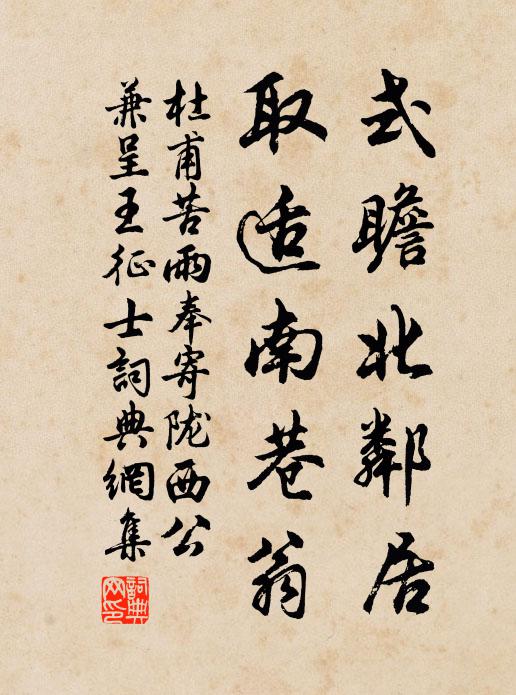 式瞻北鄰居
取适南巷翁
杜甫苦雨奉寄陇西公
兼呈王征士詞典網集
詞典網印